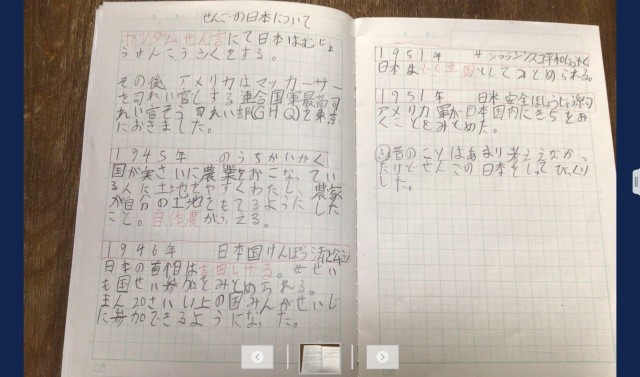 せんごの日本について
ポツダムせん言にて日本はむじょ
うけんこうふくをする。
その後、アメリカはマッカーサー
を司れい官とする連合国軍最高司
れい官そう司れい部(GHQ)を東京
におきました。
1945年 のうちかいかく
国が実さいに農業をおこなってい
る人に土地をやすくわたし、農家
が自分の土地をもてるようにした
こと。自作農がふえる。
1946年 日本国けんぽう
日本の首相は吉田しげる。女せい
も国せい参加をみとめられる。
まん20さい以上の国みんがせいじ
に参加できるようになった。
1951年 サンフランシスコ平和じょうやく
日本はどく立国としてみとめられる。
1951年 日米安全ほしょうじょう約
アメリカ軍が日本国内にきちをお
くことをみとめた。
昔のことはあまり考えてなかっ
たけどせんごの日本をしってびっくり
した。